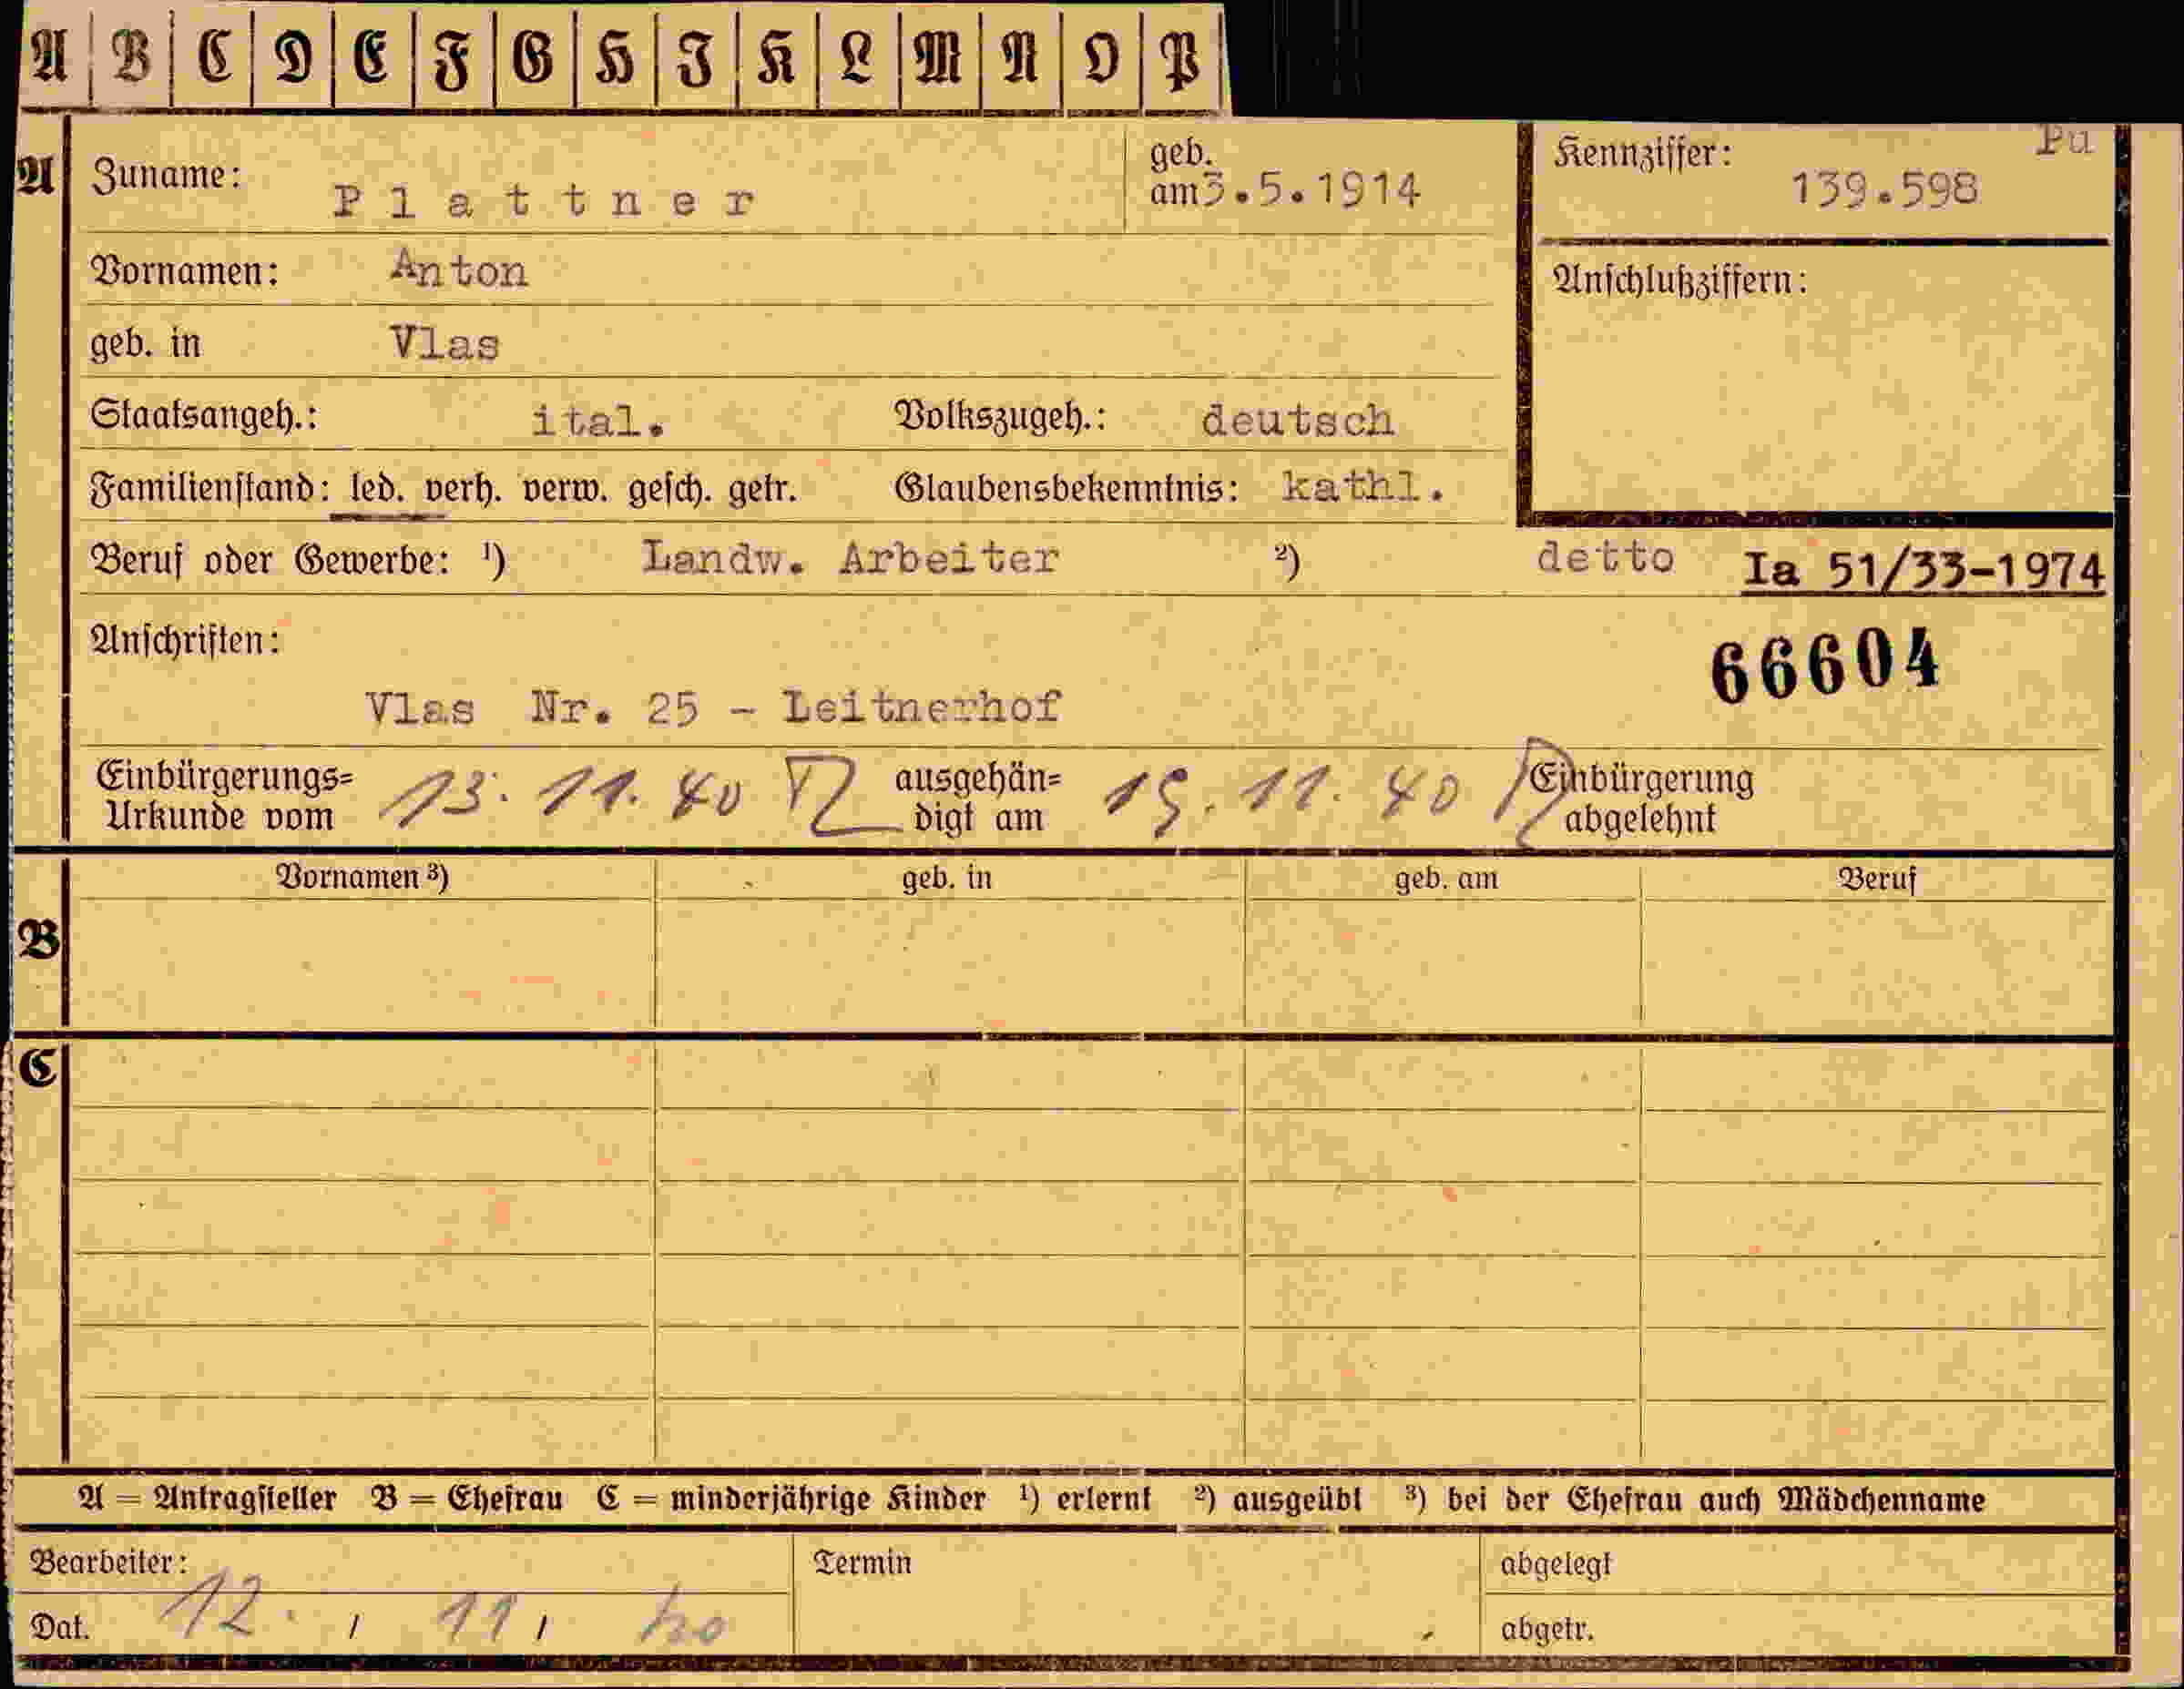 A B C D E F G H I K L M N O P
Pu
A Zuname: Plattner geb. am 3.5.1914 Kennziffer: 139.598
Vornamen: Anton Anschlußziffern:
geb. in Vlas
Staatsangeh.: ital. Volkszugeh.: deutsch
Familienstand: led. verh. verw. gesch. getr. Glaubensbekenntnis: kathl.
Beruf oder Gewerbe: ¹) Landw. Arbeiter ²) detto Ia 51/33-1974
Anschriften:
66604
Vlas Nr. 25 - Leitnerhof
Einbürgerungs= ausgehän= Einbürgerung
Urkunde vom 13. 11. 40 digt am 15. 11. 40 abgelehnt
Vornamen ³) geb. in geb. am Beruf
B
C
A = Antragsteller B = Ehefrau C = minderjährige Kinder ¹) erlernt ²) ausgeübt ³) bei der Ehefrau auch Mädchenname
Bearbeiter: Termin abgelegt
Dat. 12. / 11 / 40 abgetr.